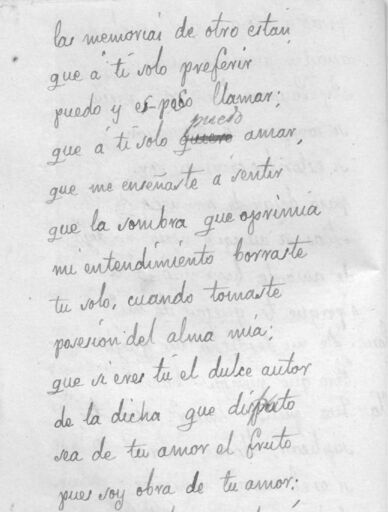 las memorias de otro están,
que á tí solo preferir
puedo y es poco llamar;
puedo
que á tí solo quiero amar,
que me enseñaste a sentir
que la sombra que oprimia
mi entendimiento borraste
tu solo, cuando tomaste
posesión del alma mia;
que si eres tú el dulce autor
de la dicha que disfruto
sea de tu amor el fruto
pues soy obra de tu amor;